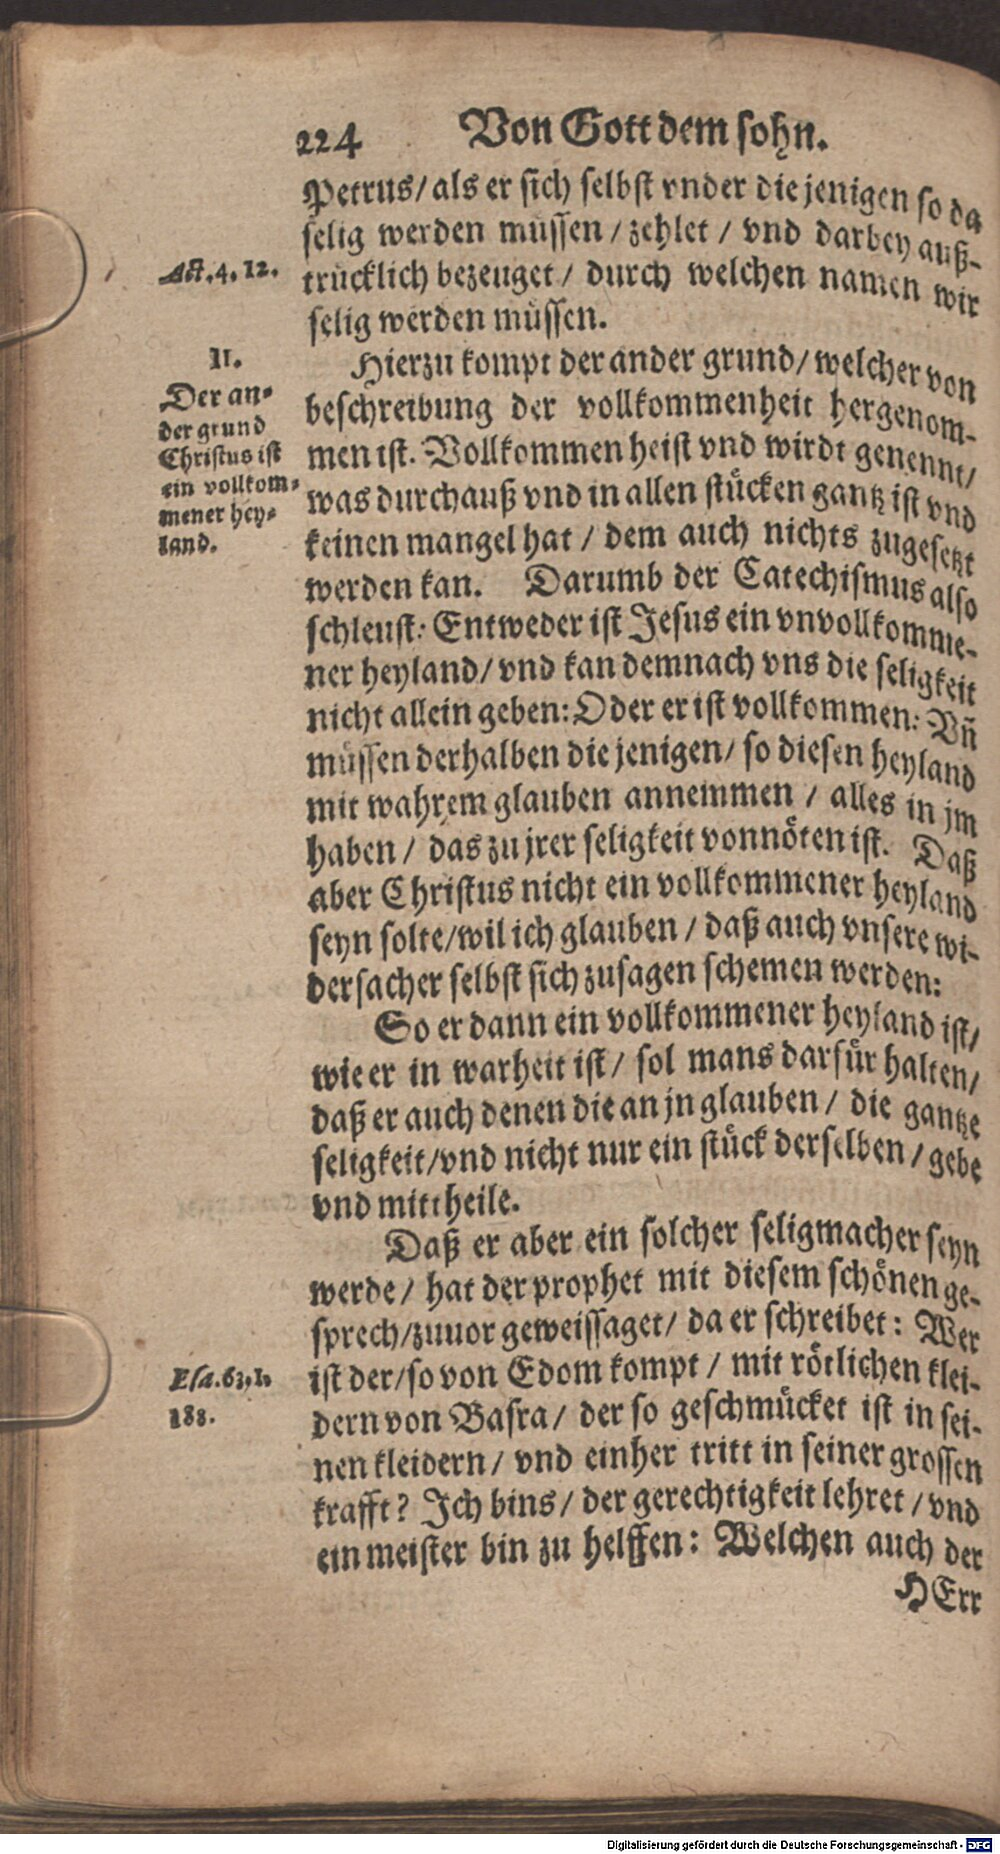 224 Von Gott dem sohn.
Petrus/ als er sich selbst vnder die jenigen so da
selig werden müssen / zehlet / vnd darbey auß-
trücklich bezeuget / durch welchen namen wir
selig werden müssen.
Act. 4. 12.
Hierzu kompt der ander grund/ welcher von
beschreibung der vollkommenheit hergenom-
men ist. Vollkommen heist vnd wirdt genennt/
was durchauß vnd in allen stücken gantz ist vnd
keinen mangel hat / dem auch nichts zugesetzt
werden kan. Darumb der Catechismus also
schleust: Entweder ist Jesus ein vnvollkomme-
ner heyland/ vnd kan demnach vns die seligkeit
nicht allein geben: Oder er ist vollkommen: Vñ
müssen derhalben die jenigen/ so diesen heyland
mit wahrem glauben annemmen / alles in jm
haben / das zu jrer seligkeit vonnöten ist. Daß
aber Christus nicht ein vollkommener heyland
seyn solte/ wil ich glauben / daß auch vnsere wi-
dersacher selbst sich zusagen schemen werden:
II.
Der an-
der grund
Christus ist
ein vollkom-
mener hey-
land.
So er dann ein vollkommener heyland ist/
wie er in warheit ist / sol mans darfür halten/
daß er auch denen die an jn glauben / die gantze
seligkeit/ vnd nicht nur ein stück derselben / gebe
vnd mittheile.
Daß er aber ein solcher seligmacher seyn
werde / hat der prophet mit diesem schönen ge-
sprech/ zuuor geweissaget/ da er schreibet: Wer
ist der/ so von Edom kompt / mit rötlichen klei-
dern von Basra / der so geschmücket ist in sei-
nen kleidern / vnd einher tritt in seiner grossen
krafft? Ich bins / der gerechtigkeit lehret / vnd
ein meister bin zu helffen: Welchen auch der
Esa. 63. 1.
188.
HErr
Digitalisierung gefördert durch die Deutsche Forschungsgemeinschaft - DFG